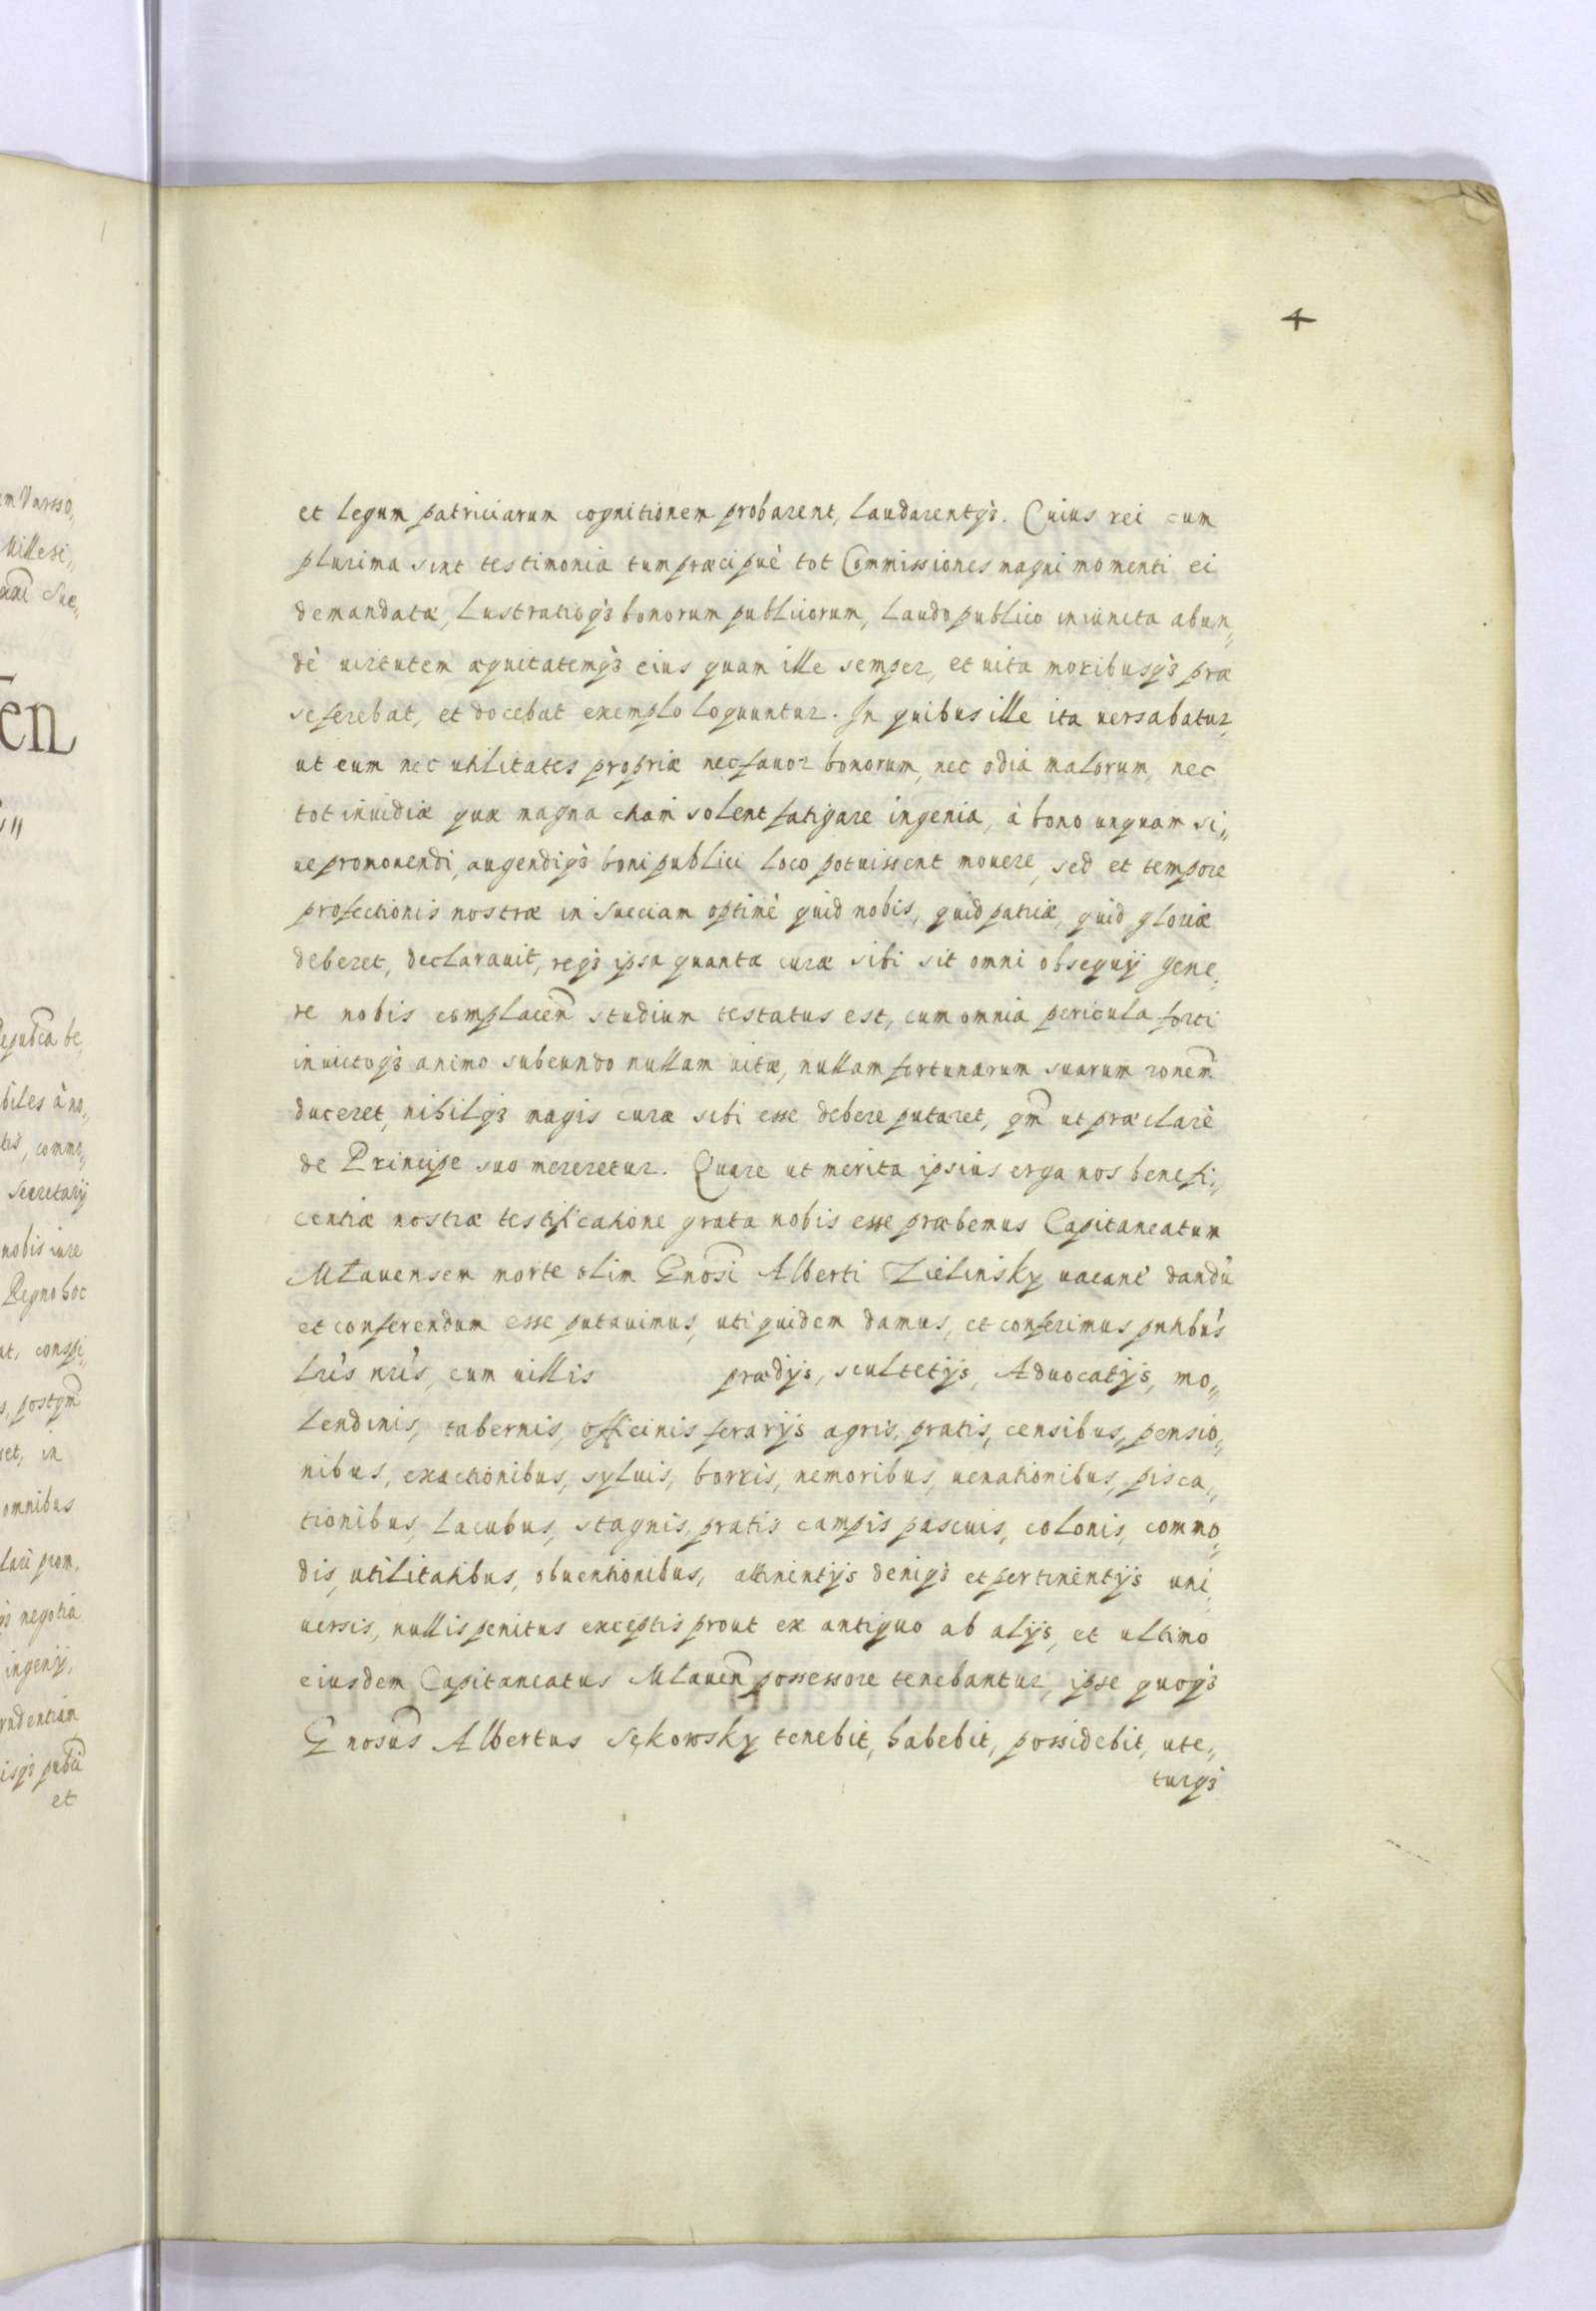 4
et legum patriciarum cognitionem probarent, laudarentq3. Cuius rei cum
plurima sint testimonia tum præcipuè tot Commissiones magni momenti ei
demandatæ, Lustratioq3 bonorum publicorum, laudo publico iniuncta abun„
dè uirtutem æquitatemq3 eius quam ille semper, et uita moribusq3 præ
seferebat, et docebat exemplo loquuntur. In quibus ille ita uersabatur,
ut eum nec utilitates propriæ nec fauor bonorum, nec odia malorum, nec
tot inuidiæ quæ magna etiam solent fatigare ingenia, à bono unquam si„
ue promouendi, augendiq3 boni publici loco potuissent mouere, sed et tempore
profectionis nostræ in Sueciam optimè quid nobis, quid patriæ, quid gloriæ
deberet, declarauit, req3 ipsa quantæ curæ sibi sit omni obsequij gene„
re nobis complacen̄ studium testatus est, cum omnia pericula forti
inuictoq3 animo subeundo nullam uitæ, nullam fortunarum suarum ronem̄
duceret, nihilq3 magis curæ sibi esse debere putaret, qm̄ ut præclarè
de Principe suo mereretur. Quare ut merita ipsius erga nos benefi„
centiæ nostræ testificatione grata nobis esse præbemus Capitaneatum
Mlauensem morte olim Gnosi Alberti Zielinsky uacan̄ dandū
et conferendum esse putauimus, uti quidem damus, et conferimus pn̄tibus
lris nris, cum uillis prædijs, scultetijs, Aduocatijs, mo„
lendinis, tabernis, officinis ferarijs agris, pratis, censibus, pensio„
nibus, exactionibus, syluis, borris, nemoribus, uenationibus, pisca„
tionibus, lacubus, stagnis, pratis campis pascuis, colonis, commo„
dis, utilitatibus, obuentionibus, attinentijs deniq3 et pertinentijs uni„
uersis, nullis penitus exceptis prout ex antiquo ab alijs, et ultimo
eiusdem Capitaneatus Mlauen̄ possessore tenebantur, ipse quoq3
Gnosus Albertus Sękowsky tenebit, habebit, possidebit, ute„
turq3